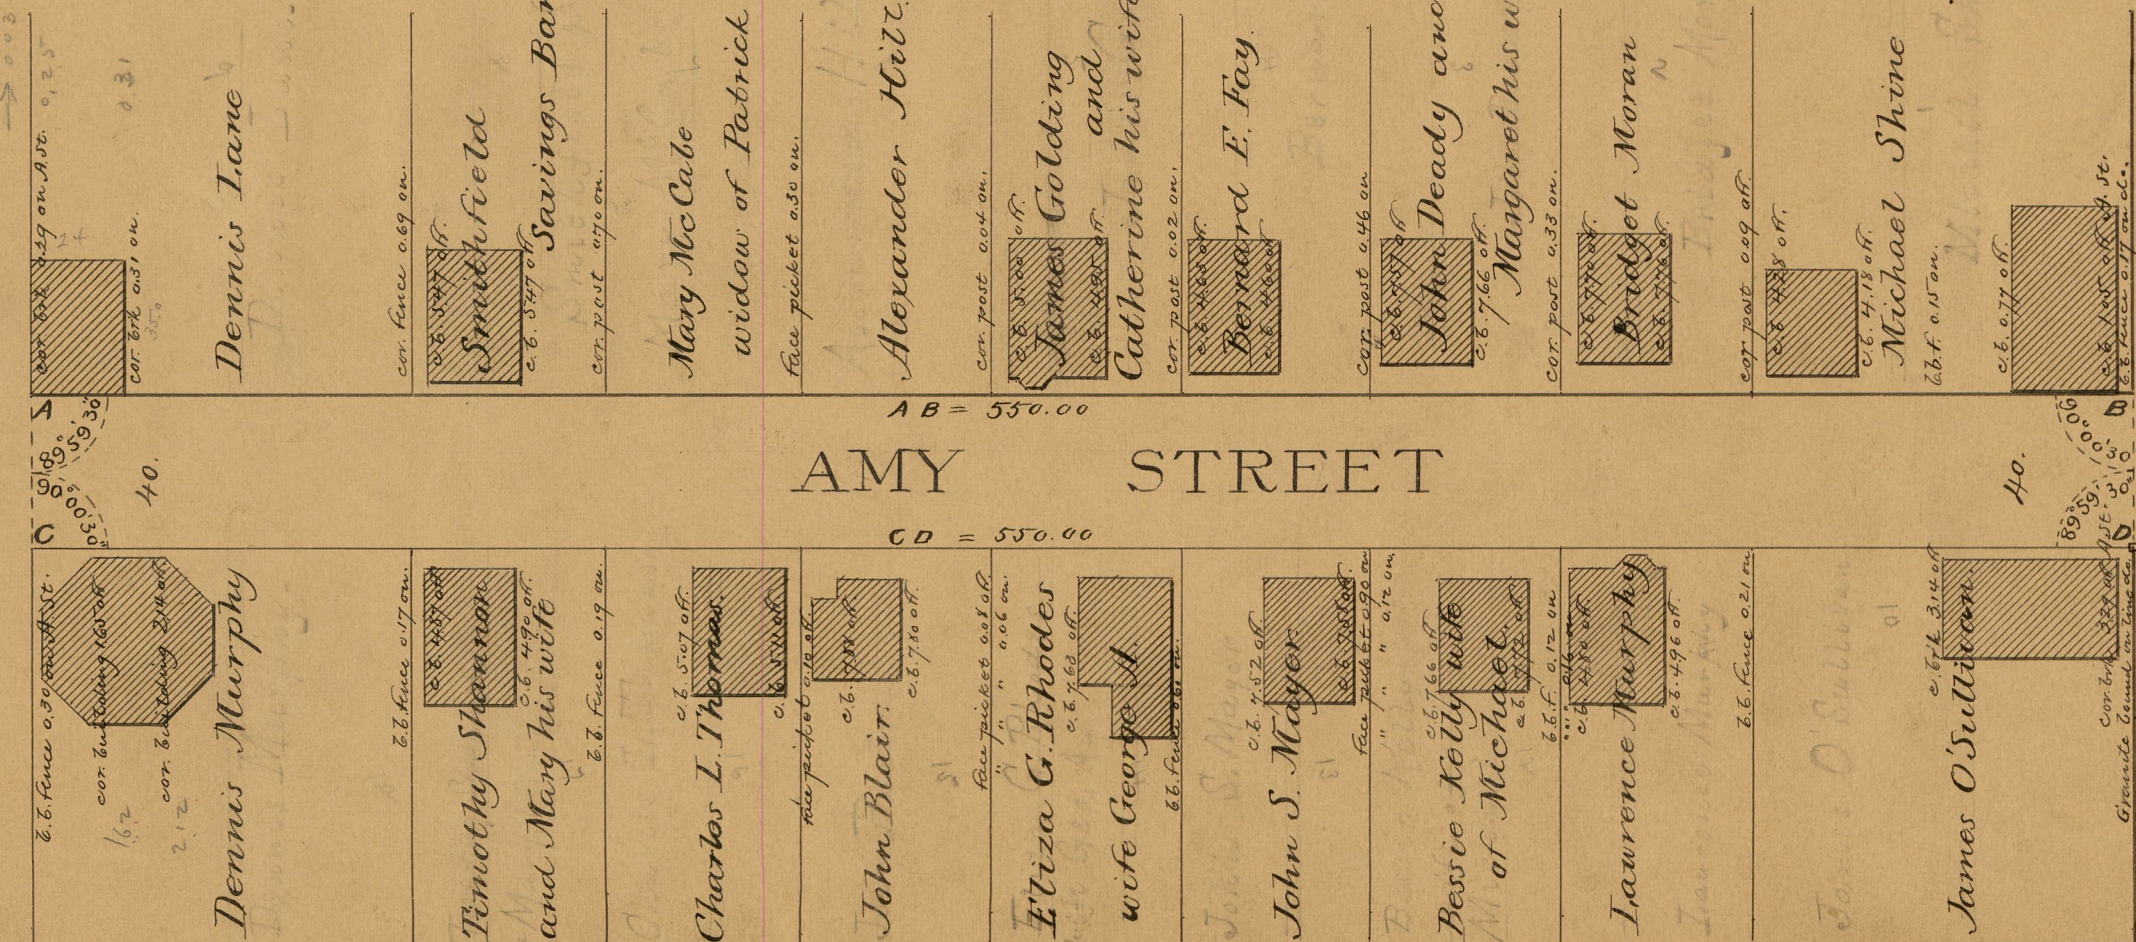 cor. brk. 0.29 on A. St.
0.25
0.31
cor. brk 0.31 on.
Dennis Lane
cor. fence 0.69 on.
c.b. 5.47 off.
Smithfield
Savings Ban
c.b. 5.47 off.
cor. post 0.70 on.
Mary McCabe
widow of Patrick
face picket 0.30 on.
Alexander Hill
cor. post 0.04 on.
c.b. 5.00 off.
James Golding
and
c.b. 4.95 off.
Catherine his wife
cor. post 0.02 on.
c.b. 4.65 off.
Bernard E. Fay.
c.b. 4.60 off.
cor. post 0.46 on
c.b. 7.57 off
John Deady and
c.b. 7.66 off.
Margaret his w
cor. post 0.33 on.
c.b. 7.70 off.
Bridget Moran
c.b. 7.76 off.
cor post 0.09 off.
c.b. 4.28 off.
c.b. 4.18 off.
Michael Shine
b.b.f. 0.15 on.
c.b. 0.77 off.
c.b. 1.05 off A. St.
b.b. fence 0.17 on do.
A
AB = 550.00
B
89° 59' 30"
90° 00' 30"
40.
AMY STREET
40.
90° 00' 30"
89° 59' 30"
C
CD = 550.00
D
b.b. fence 0.30 on A. St.
cor. building 1.65 off
cor. building 2.14 off
1.62
2.12
Dennis Murphy
b.b. fence 0.17 on.
c.b. 4.87 off.
Timothy Shannon
c.b. 4.90 off.
and Mary his wife
b.b. fence 0.19 on.
c.b. 5.07 off.
Charles L. Thomas.
c.b. 5.11 off.
face picket 0.10 off.
c.b. 7.88 off.
John Blair.
c.b. 7.80 off.
face picket 0.08 off.
" " 0.06 on.
Eliza G. Rhodes
c.b. 7.68 off.
wife George A.
b.b. fence 0.60 on.
c.b. 7.52 off.
John S. Mayer
c.b. 7.58 off.
face picket 0.90 on
" " 0.12 on.
c.b. 7.66 off.
Bessie Kelly wife
of Michael.
c.b. 7.72 off.
b.b.f. 0.12 on
" " 0.16 on
c.b. 4.80 off.
Lawrence Murphy
c.b. 4.96 off.
b.b. fence 0.21 on.
c. brk 3.14 off
James O'Sullivan.
cor. brk. 3.29 off A St.
Granite bound on line do.